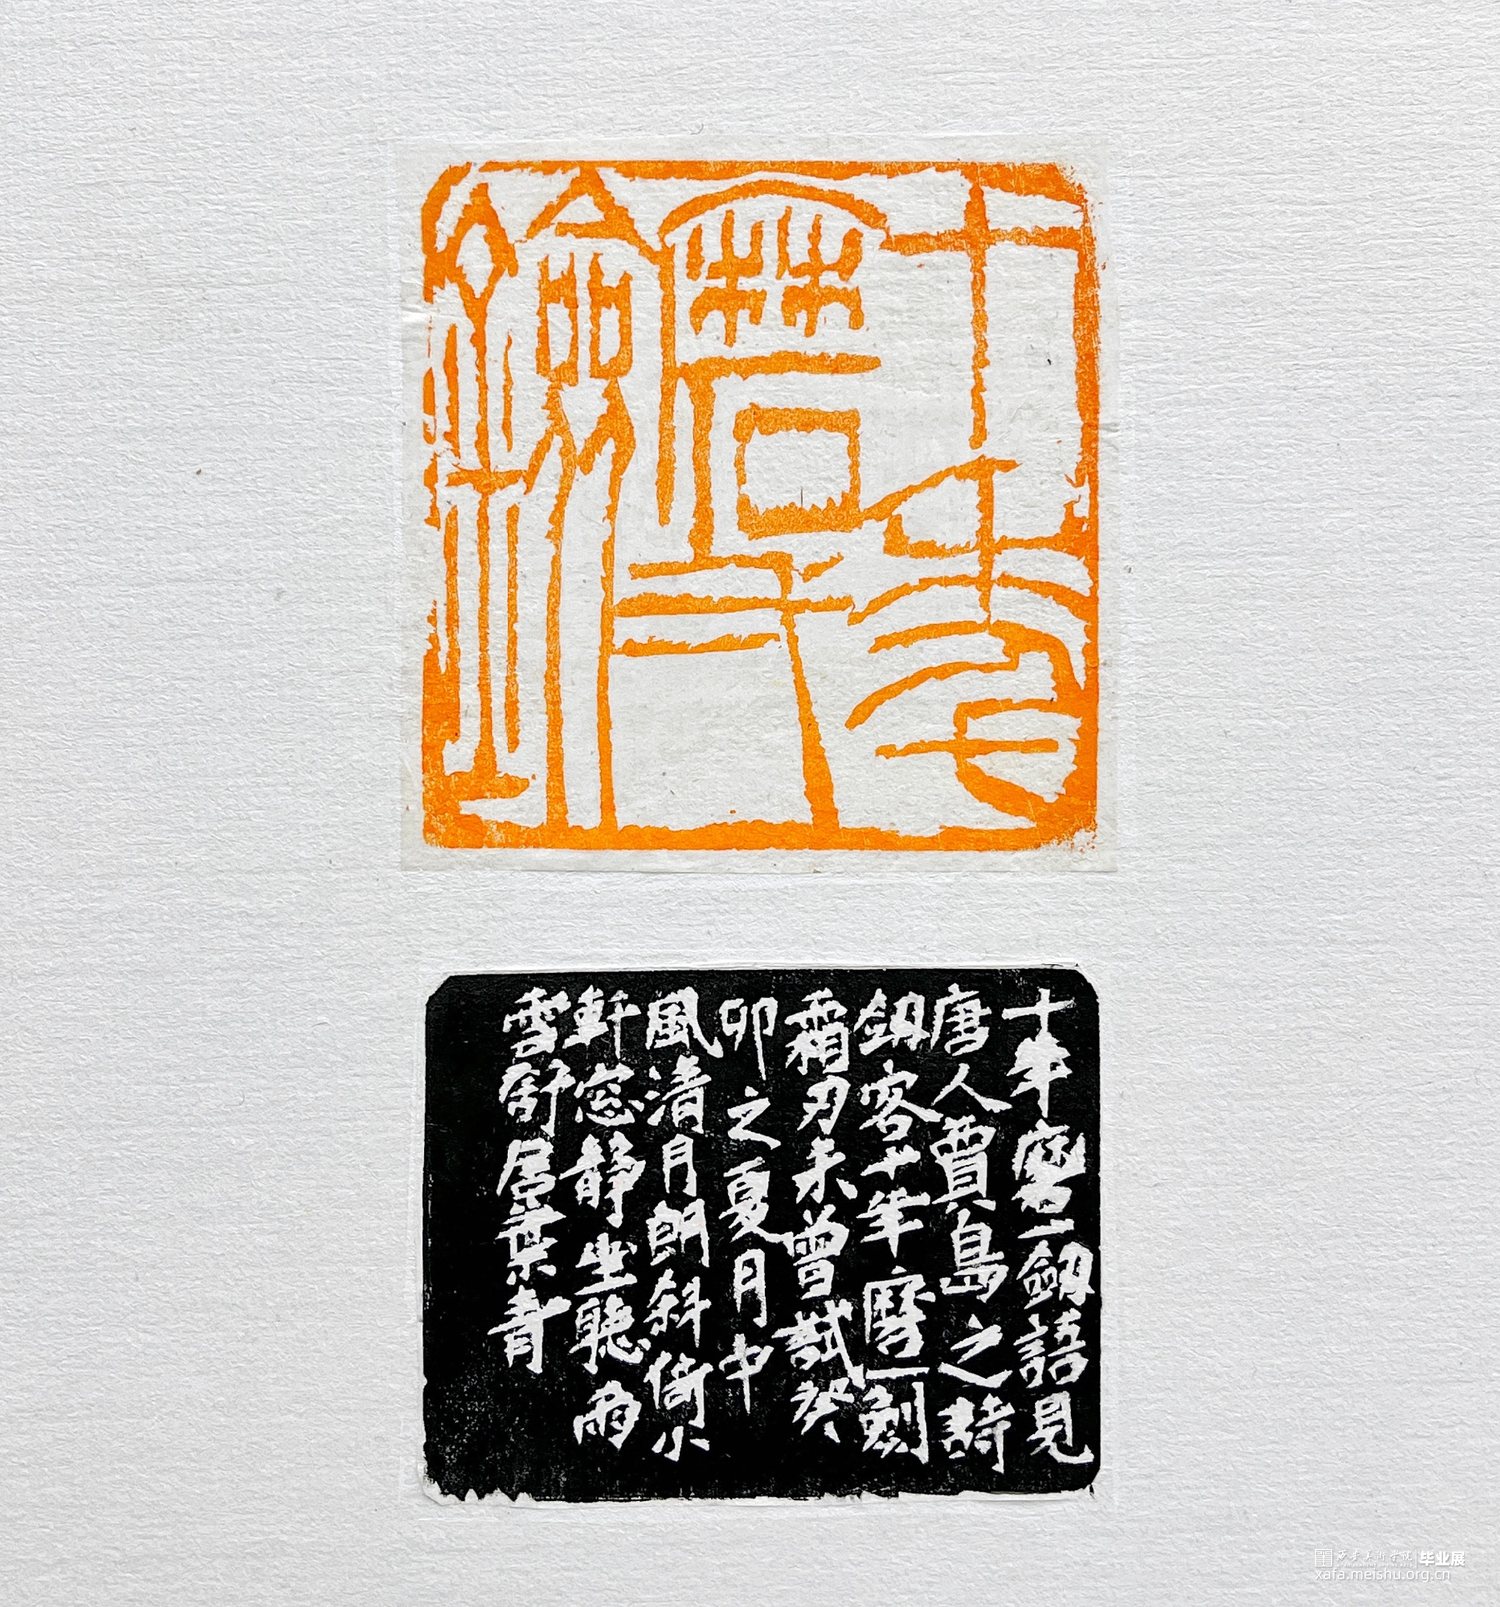 十年
磨
劍
十年磨一釼語見
唐人賈島之詩
釼客十年磨一劍
霜刃未曾試癸
卯之夏月中
風清月朗斜倚小
軒窗静坐聽雨
雪舒居葉青
西安美术学院 毕业展
xafa.meishu.org.cn